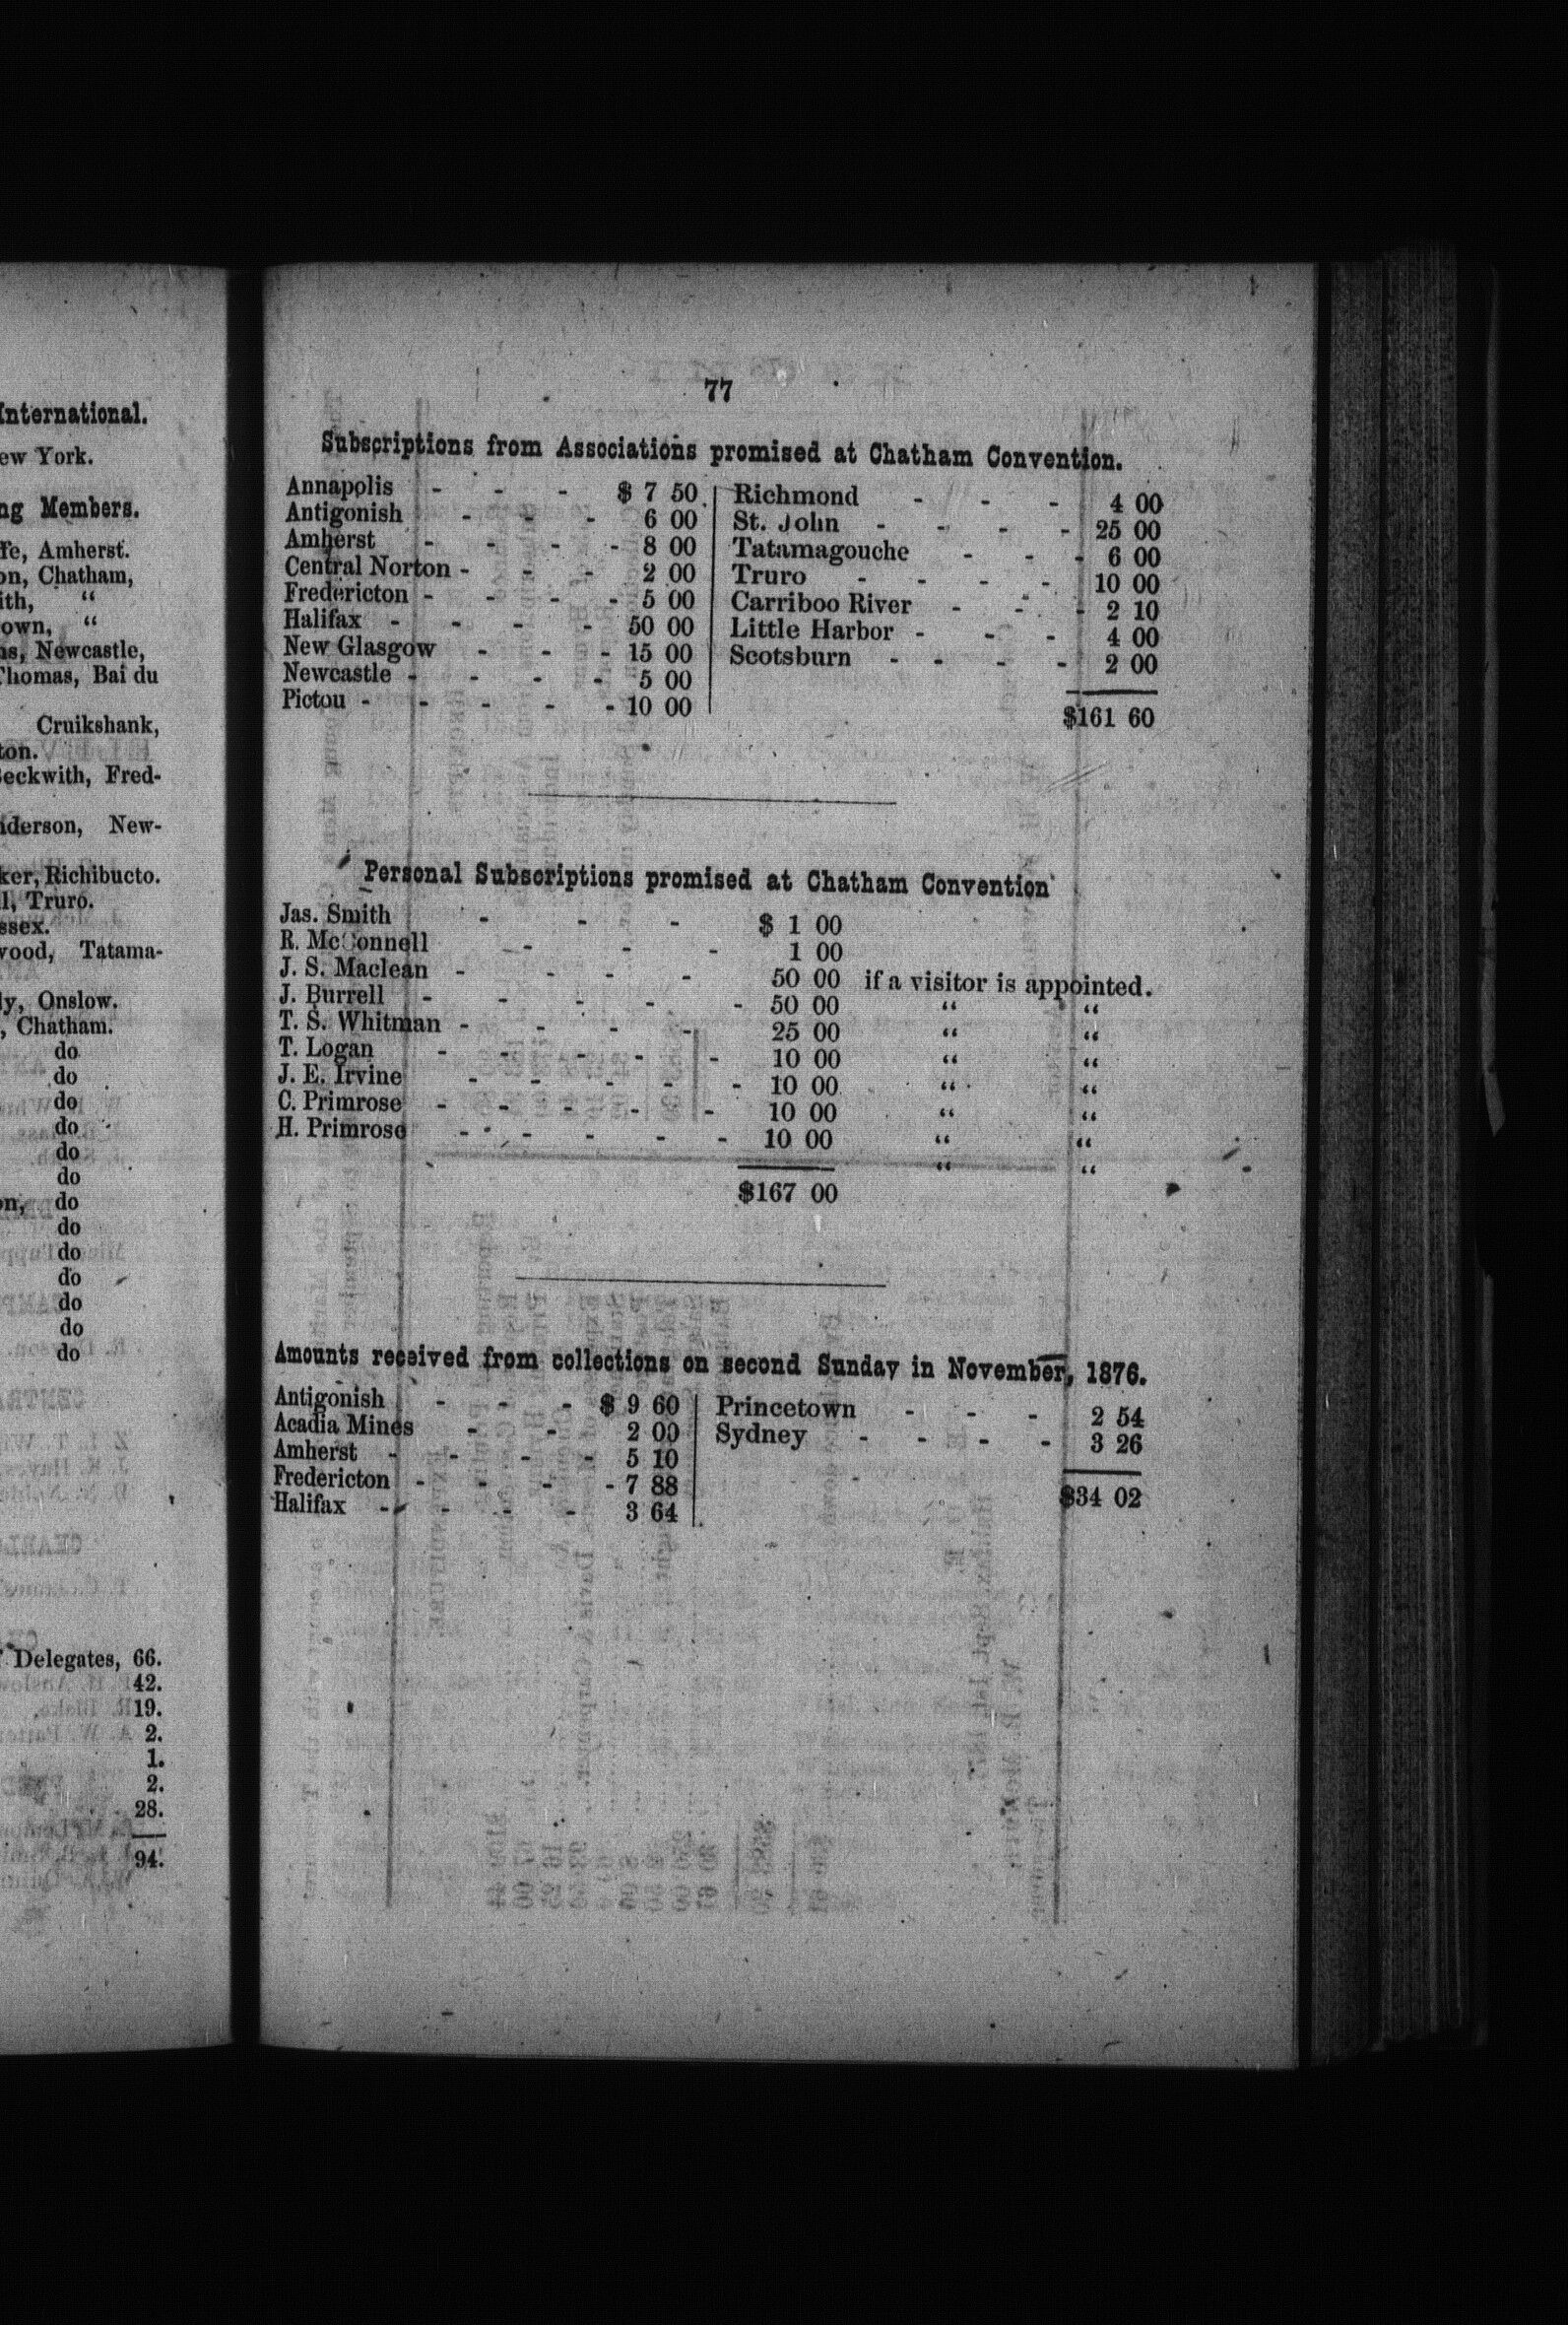 International.
ew York.
ng Members.
fe, Amherst.
on, Chatham,
ith, "
own, "
ns, Newcastle,
Thomas, Bai du
Cruikshank,
ton.
Beckwith, Fred-
nderson, New-
ker, Richibucto.
ll, Truro.
ssex.
wood, Tatama-
ly, Onslow.
, Chatham.
do
do
do
do
do
do
on, do
do
do
do
do
do
do
Delegates, 66.
42.
19.
2.
1.
2.
28.
94.
77
Subscriptions from Associations promised at Chatham Convention.
Annapolis - - - $ 7 50
Antigonish - - - 6 00
Amherst - - - - 8 00
Central Norton - - - 2 00
Fredericton - - - - 5 00
Halifax - - - - 50 00
New Glasgow - - - 15 00
Newcastle - - - - 5 00
Pictou - - - - - 10 00
Richmond - - - 4 00
St. John - - - - 25 00
Tatamagouche - - - 6 00
Truro - - - - 10 00
Carriboo River - - - 2 10
Little Harbor - - - 4 00
Scotsburn - - - - 2 00
$161 60
Personal Subscriptions promised at Chatham Convention
Jas. Smith - - - $ 1 00
R. McConnell - - - 1 00
J. S. Maclean - - - - 50 00 if a visitor is appointed.
J. Burrell - - - - - 50 00 " "
T. S. Whitman - - - - 25 00 " "
T. Logan - - - - - 10 00 " "
J. E. Irvine - - - - - 10 00 " "
C. Primrose - - - - - 10 00 " "
H. Primrose - - - - - 10 00 " "
" "
$167 00
Amounts received from collections on second Sunday in November, 1876.
Antigonish - - - $ 9 60
Acadia Mines - - 2 00
Amherst - - - - 5 10
Fredericton - - - - 7 88
Halifax - - - - 3 64
Princetown - - - 2 54
Sydney - - - - 3 26
$34 02